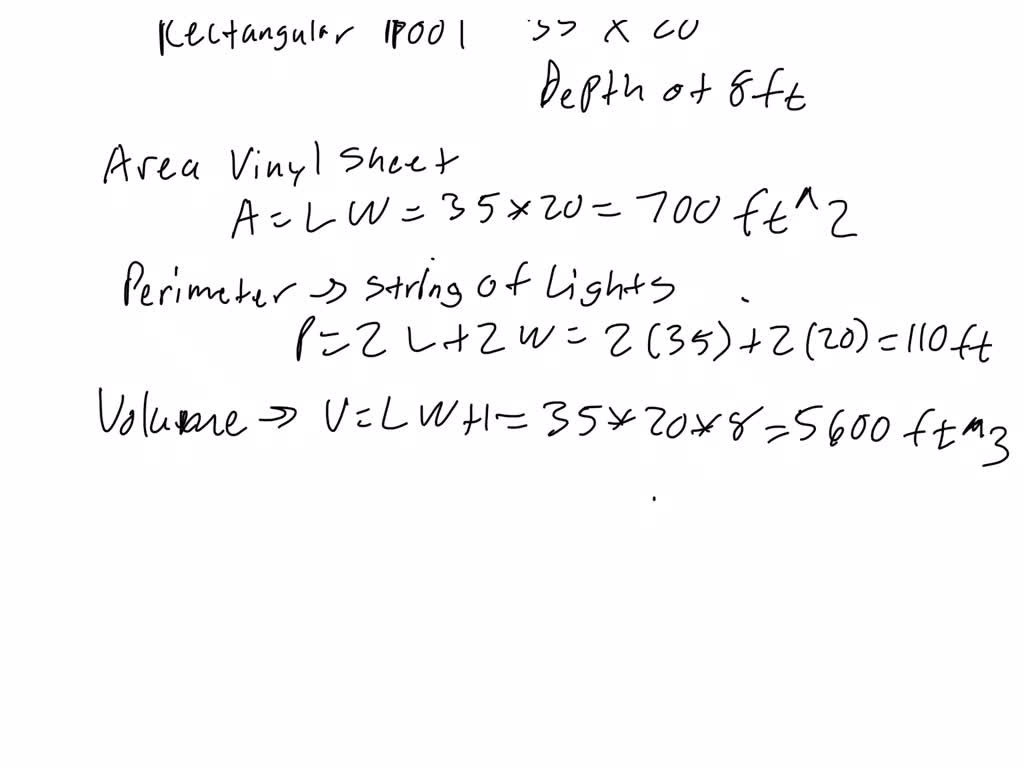 Rectangular Pool 35 x 20
Depth of 8ft
Area Vinyl Sheet
A = L W = 35 * 20 = 700 ft^2
Perimeter → string of Lights
P = 2 L + 2 W = 2 (35) + 2 (20) = 110 ft
Volume → V = L W H = 35 * 20 * 8 = 5600 ft^3